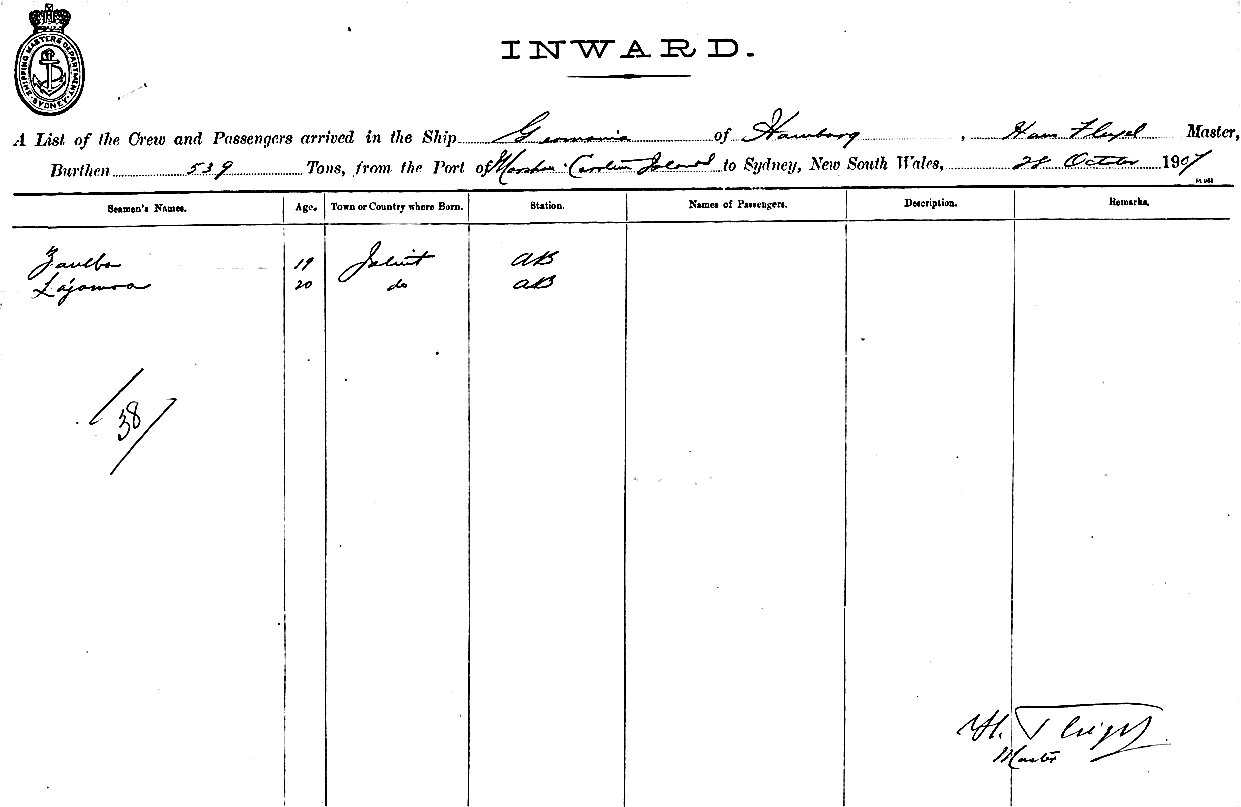 SHIPPING MASTERS DEPARTMENT. SYDNEY.
INWARD.
A List of the Crew and Passengers arrived in the Ship Germania of Hamburg, Hans Master,
Burthen 539 Tons, from the Port of Caroline Island to Sydney, New South Wales, 28 October 1907
Seamen's Names. Age. Town or Country where Born. Station. Names of Passengers. Description. Remarks.
19 Jaluit AB
20 do AB
38
H.
Master